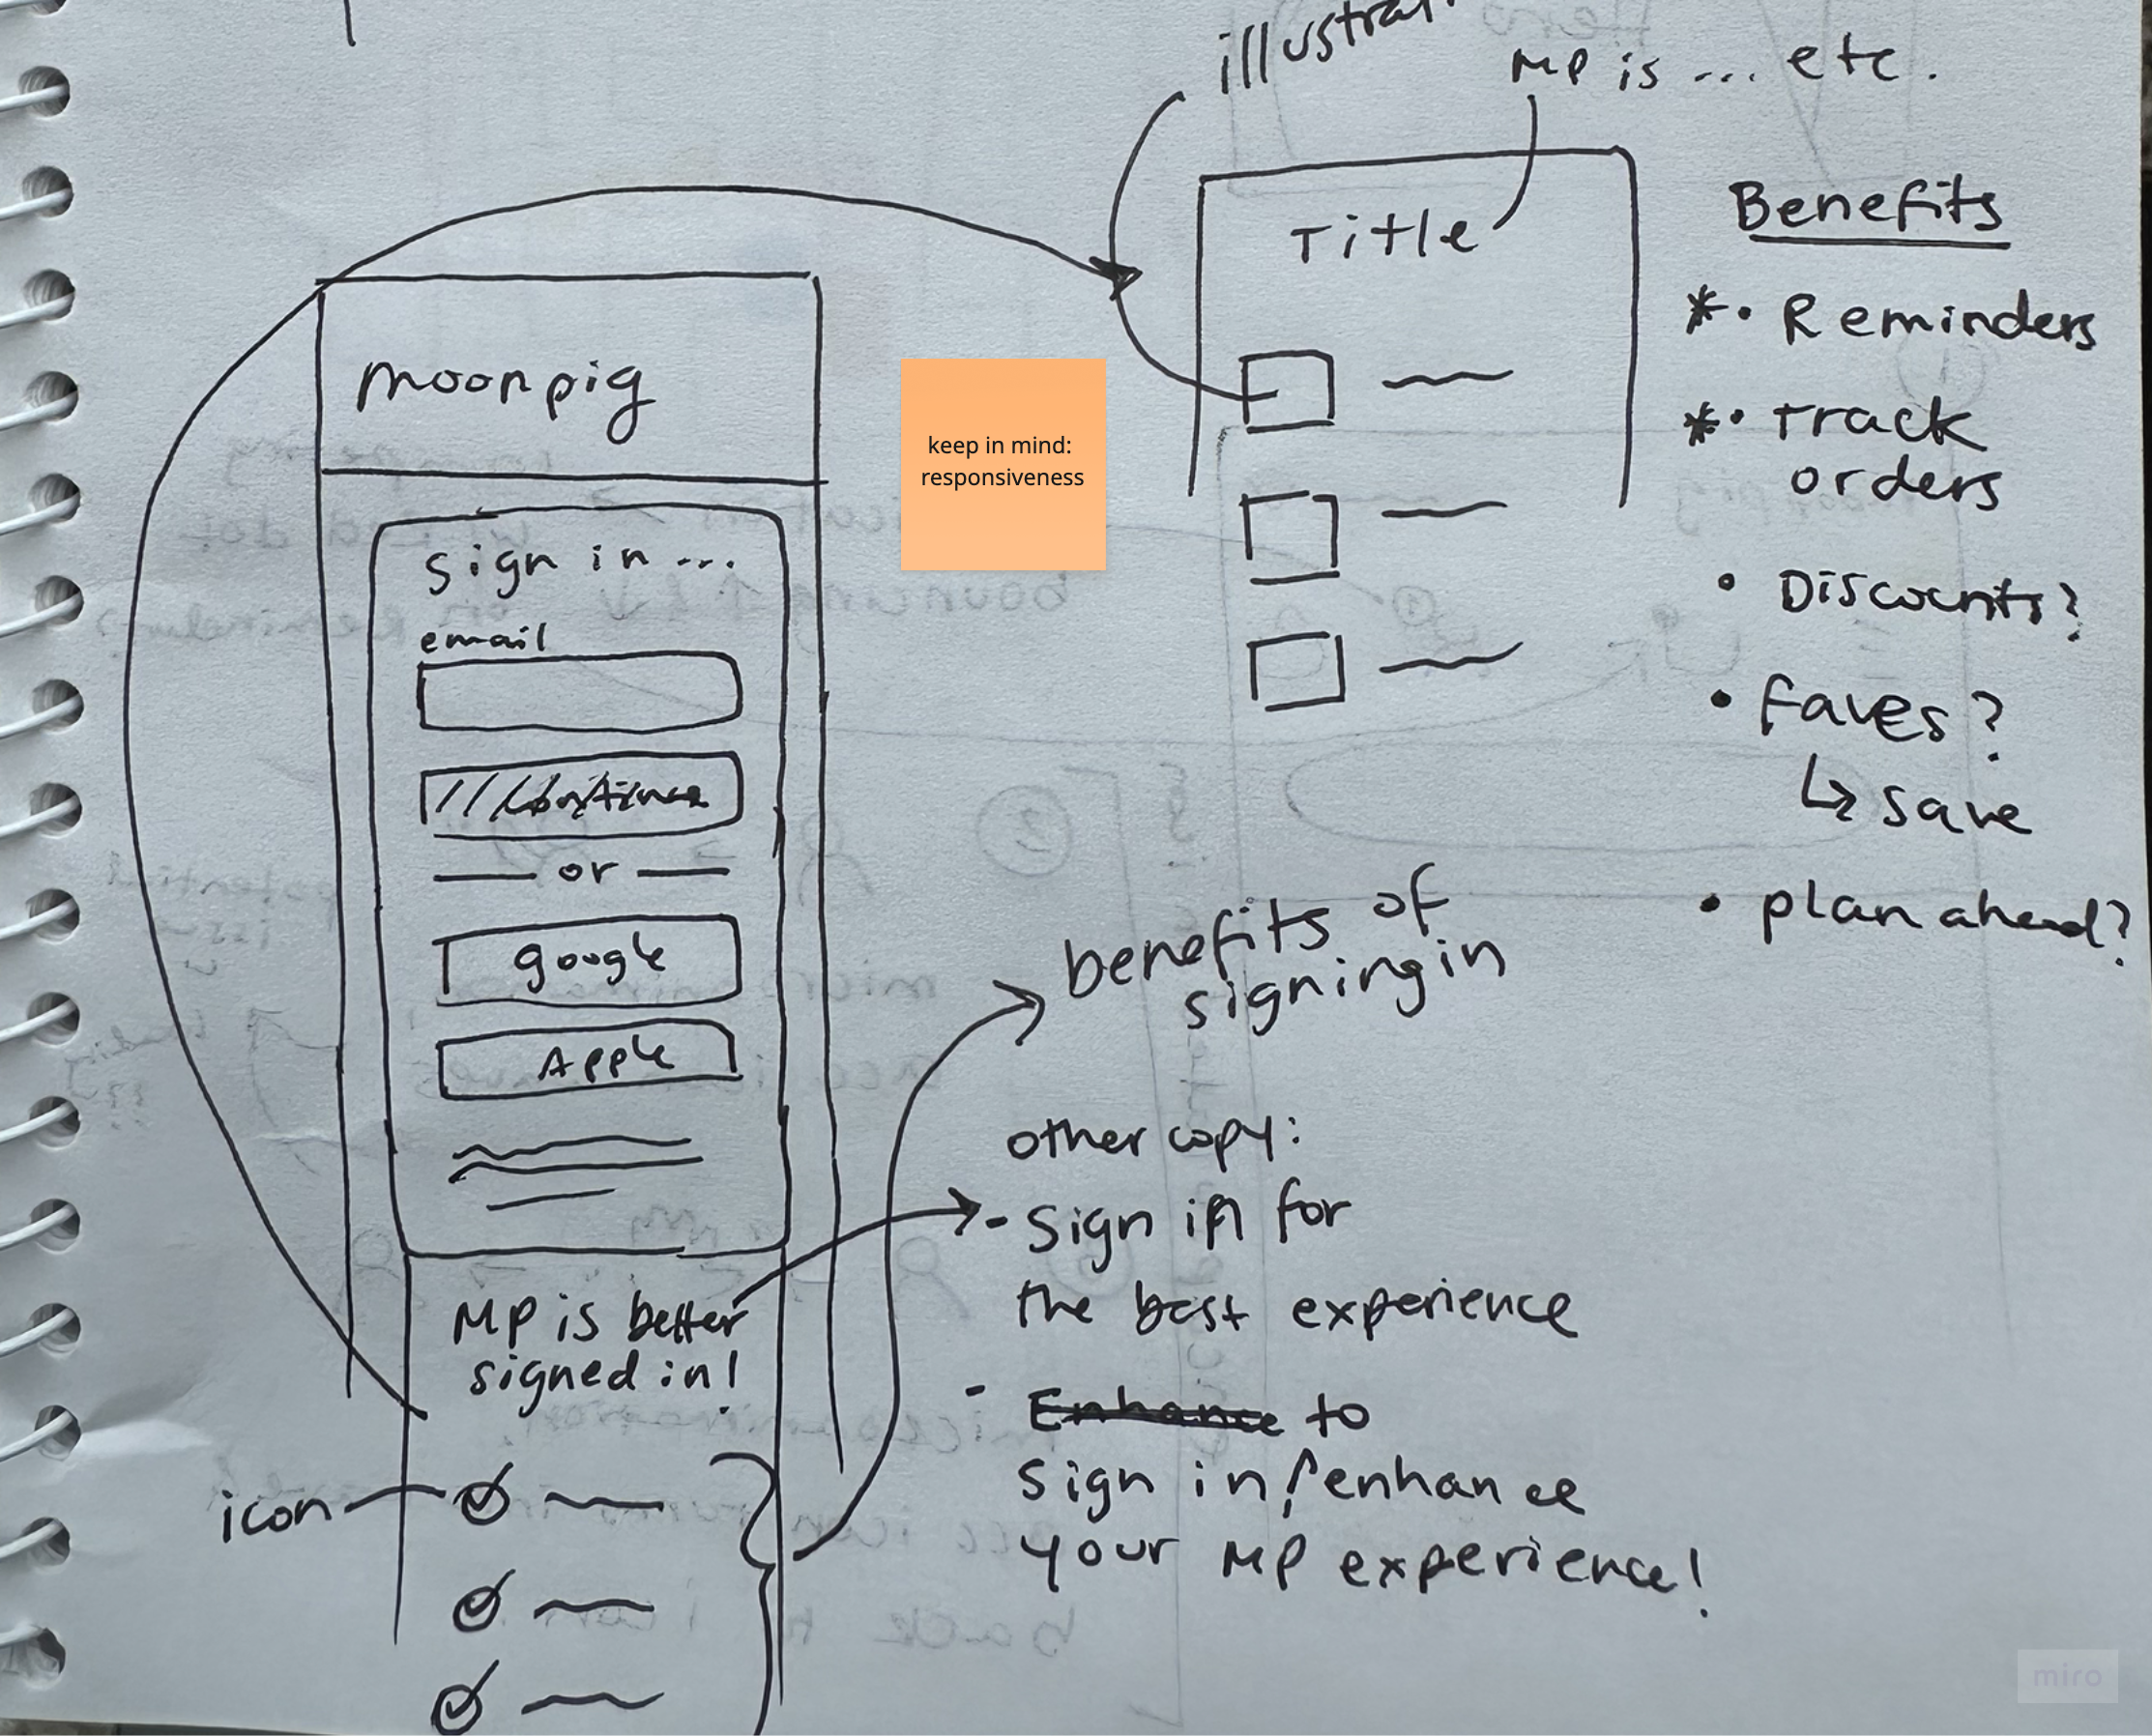 illustrat
MP is ... etc.
moonpig
sign in ...
email
Continue
or
google
Apple
MP is better
signed in!
icon
keep in mind:
responsiveness
Title
Benefits
* • Reminders
* • Track
orders
• Discounts?
• Faves?
↳ save
• plan ahead?
benefits of
signing in
other copy:
- Sign in for
the best experience
- Enhance to
sign in / enhance
your MP experience!
miro